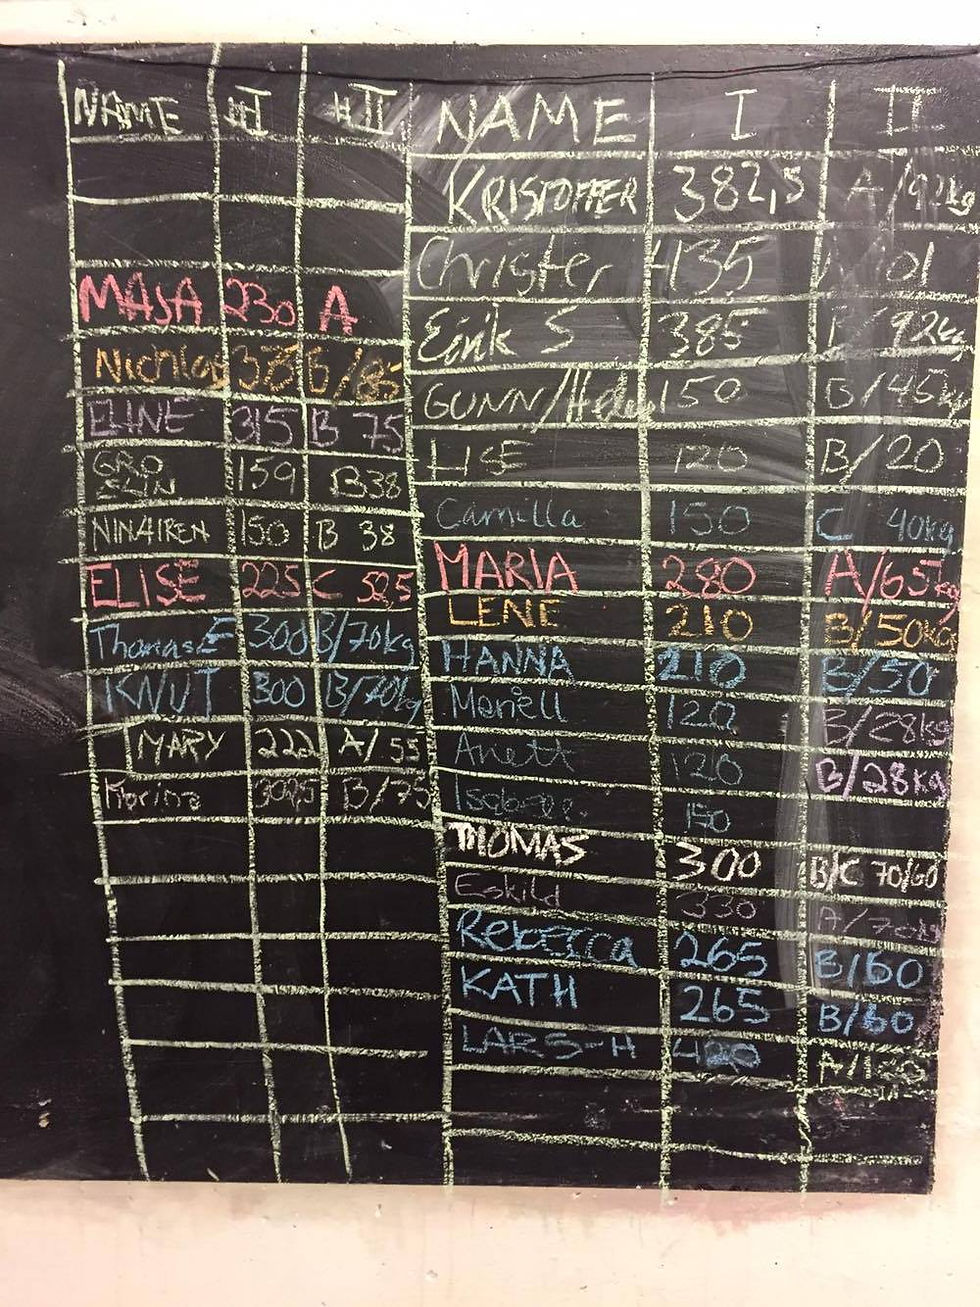 NAME #I #II
MAJA 230 A
Nichlas B/85
ELINE 315 B 75
GRO
ELIN 159 B38
NINA+IREN 150 B 38
ELISE 225 C 52,5
Thomas E 300 B/70kg
KNUT 300 B/70kg
MARY 222 A/55
Karina B/75
NAME I II
KRISTOFFER 382,5 A/92kg
Christer 435
Eirik S 385 92kg
GUNN/ 150 B/45kg
LISE 120 B/20
Camilla 150 C 40kg
MARIA 280 A/65kg
LENE 210 B/50kg
HANNA 210 B/50
Meriell 120 B/28kg
Anett 120 B/28kg
THOMAS 300 B/C 70/60
Eskild 330 A/70kg
Rebecca 265 B/60
KATH 265 B/60
LARS-H A/120